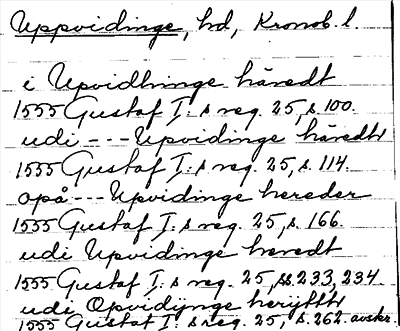 Uppvidinge, hd, Kronob. l.
i Upvidhinge häredt
1555 Gustaf I:s reg. 25, s. 100.
udi --- Upvidinge häredt
1555 Gustaf I:s reg. 25, s. 114.
opå --- Upvidinge hereder
1555 Gustaf I:s reg. 25, s. 166.
udi Upvidinge heredt
1555 Gustaf I:s reg. 25, ss. 233, 234
udi Opvidijnge
1555 Gustaf I:s reg. 25, s. 262. avskr.